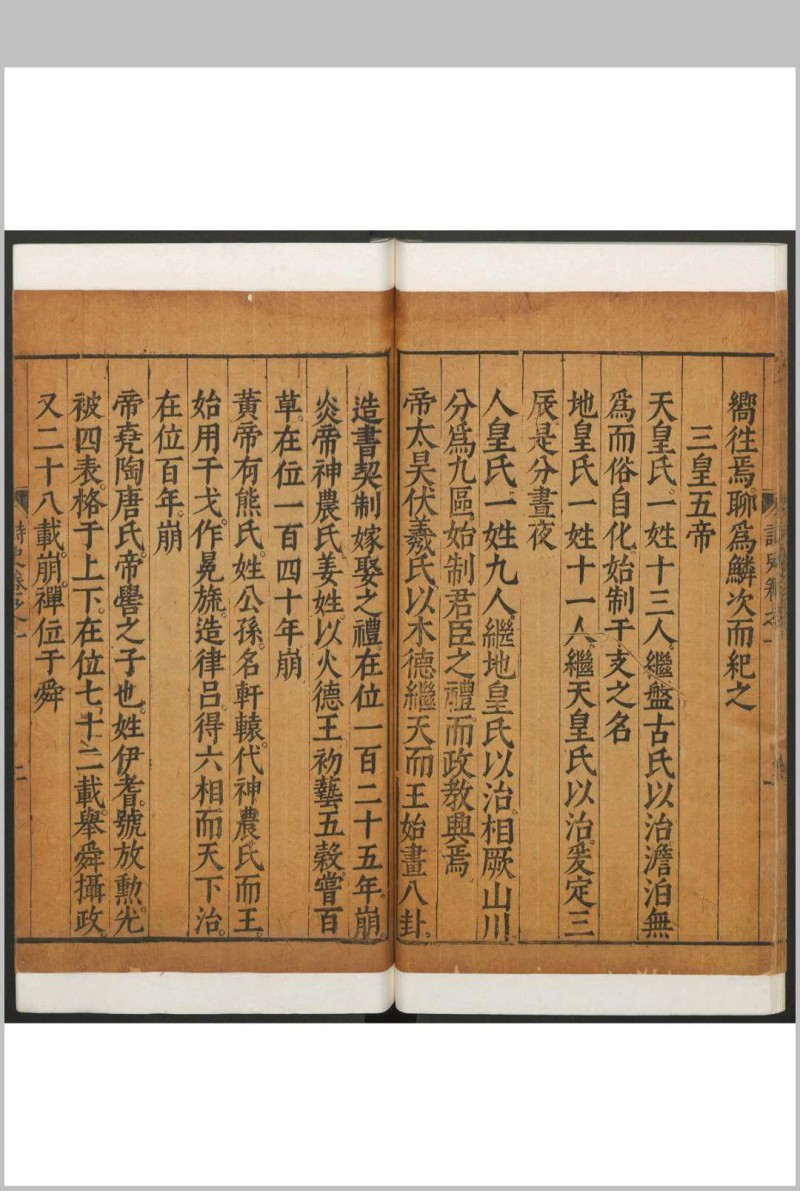 嚮徃焉聊爲鱗次而紀之
三皇五帝
天皇氏。一姓十三人。繼盤古氏以治。澹泊無
爲而俗自化。始制干支之名
地皇氏一姓十一人。繼天皇氏以治。爰定三
辰是分晝夜
人皇氏。一姓九人。繼地皇氏以治。相厥山川
分爲九區。始制君臣之禮而政教興焉。
帝太昊伏羲氏以木德繼天而王始畫八卦。
造書契制嫁娶之禮。在位一百二十五年崩。
炎帝神農氏姜姓以火德王初藝五穀。嘗百
草。在位一百四十年崩
黃帝有熊氏。姓公孫。名軒轅。代神農氏而王。
始用干戈。作冕旒。造律吕。得六相而天下治。
在位百年。崩
帝堯陶唐氏。帝嚳之子也。姓伊耆。號放勲。光
被四表。格于上下。在位七十二載。舉舜攝政。
又二十八載。崩。禪位于舜
詩史卷之一
二